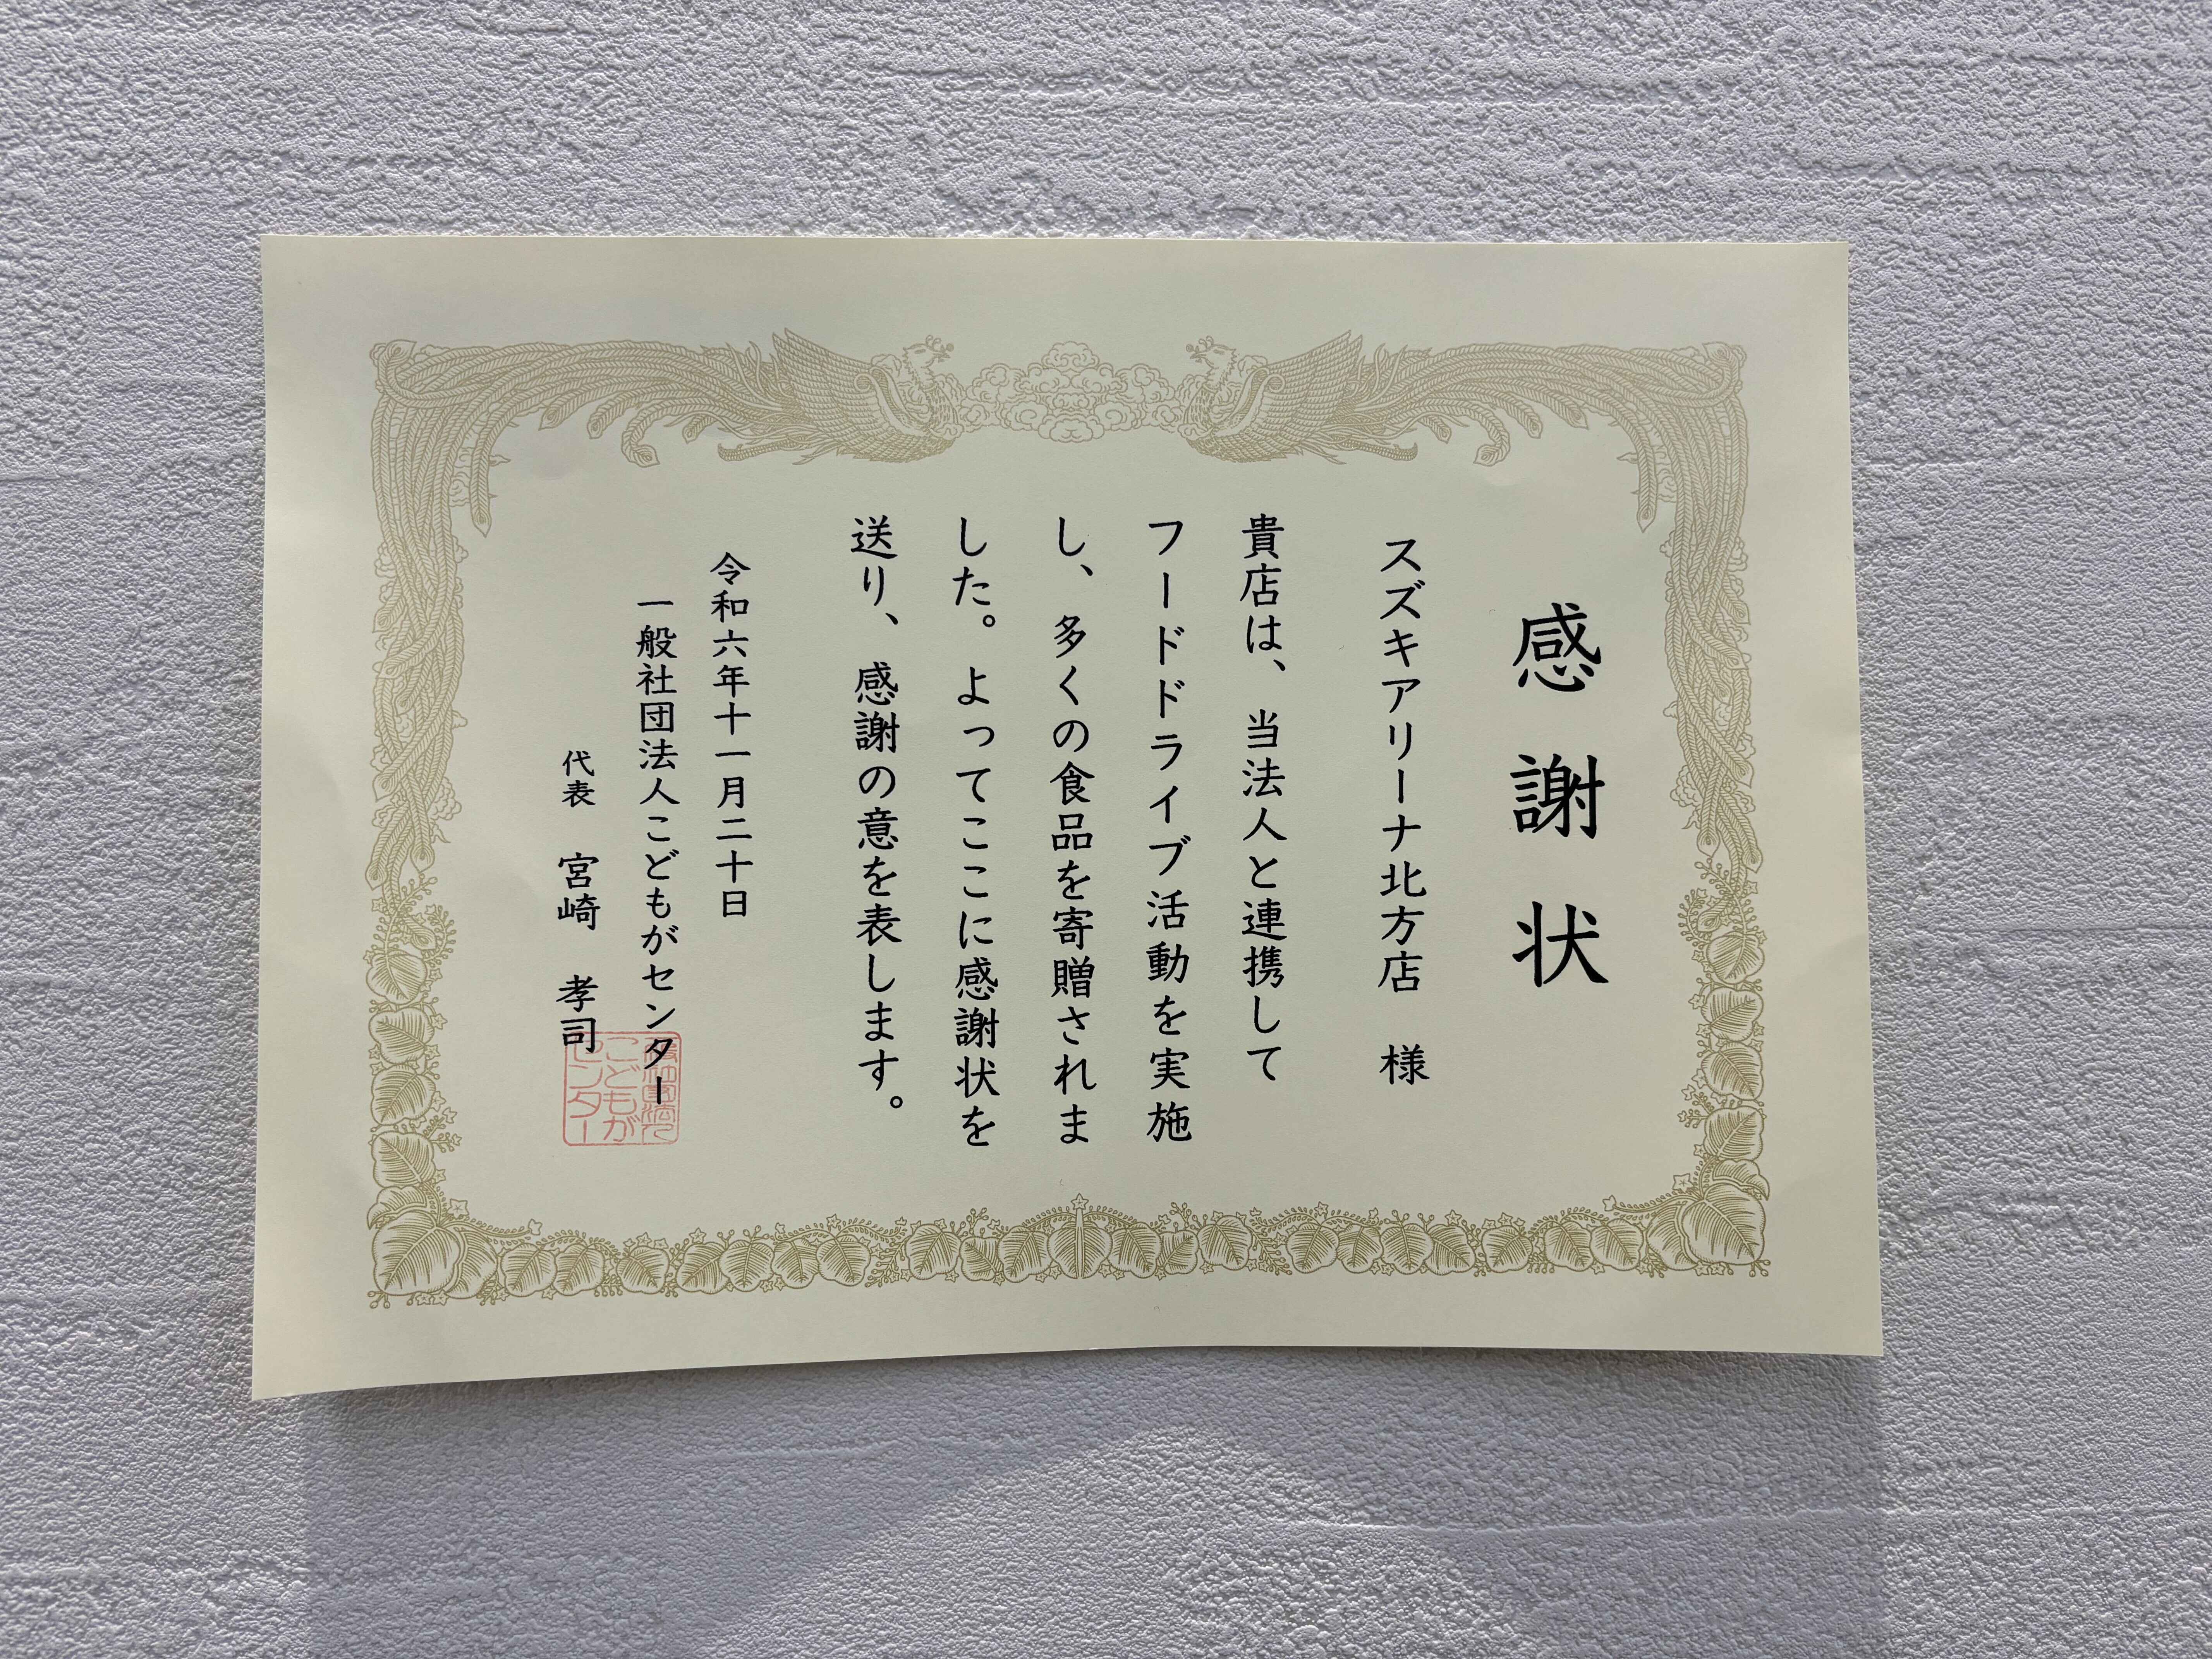 感謝状
スズキアリーナ北方店 様
貴店は、当法人と連携して
フードドライブ活動を実施
し、多くの食品を寄贈されま
した。よってここに感謝状を
送り、感謝の意を表します。
令和六年十一月二十日
一般社団法人こどもがセンター
代表 宮崎 孝司
一般社団法人
こどもが
センター